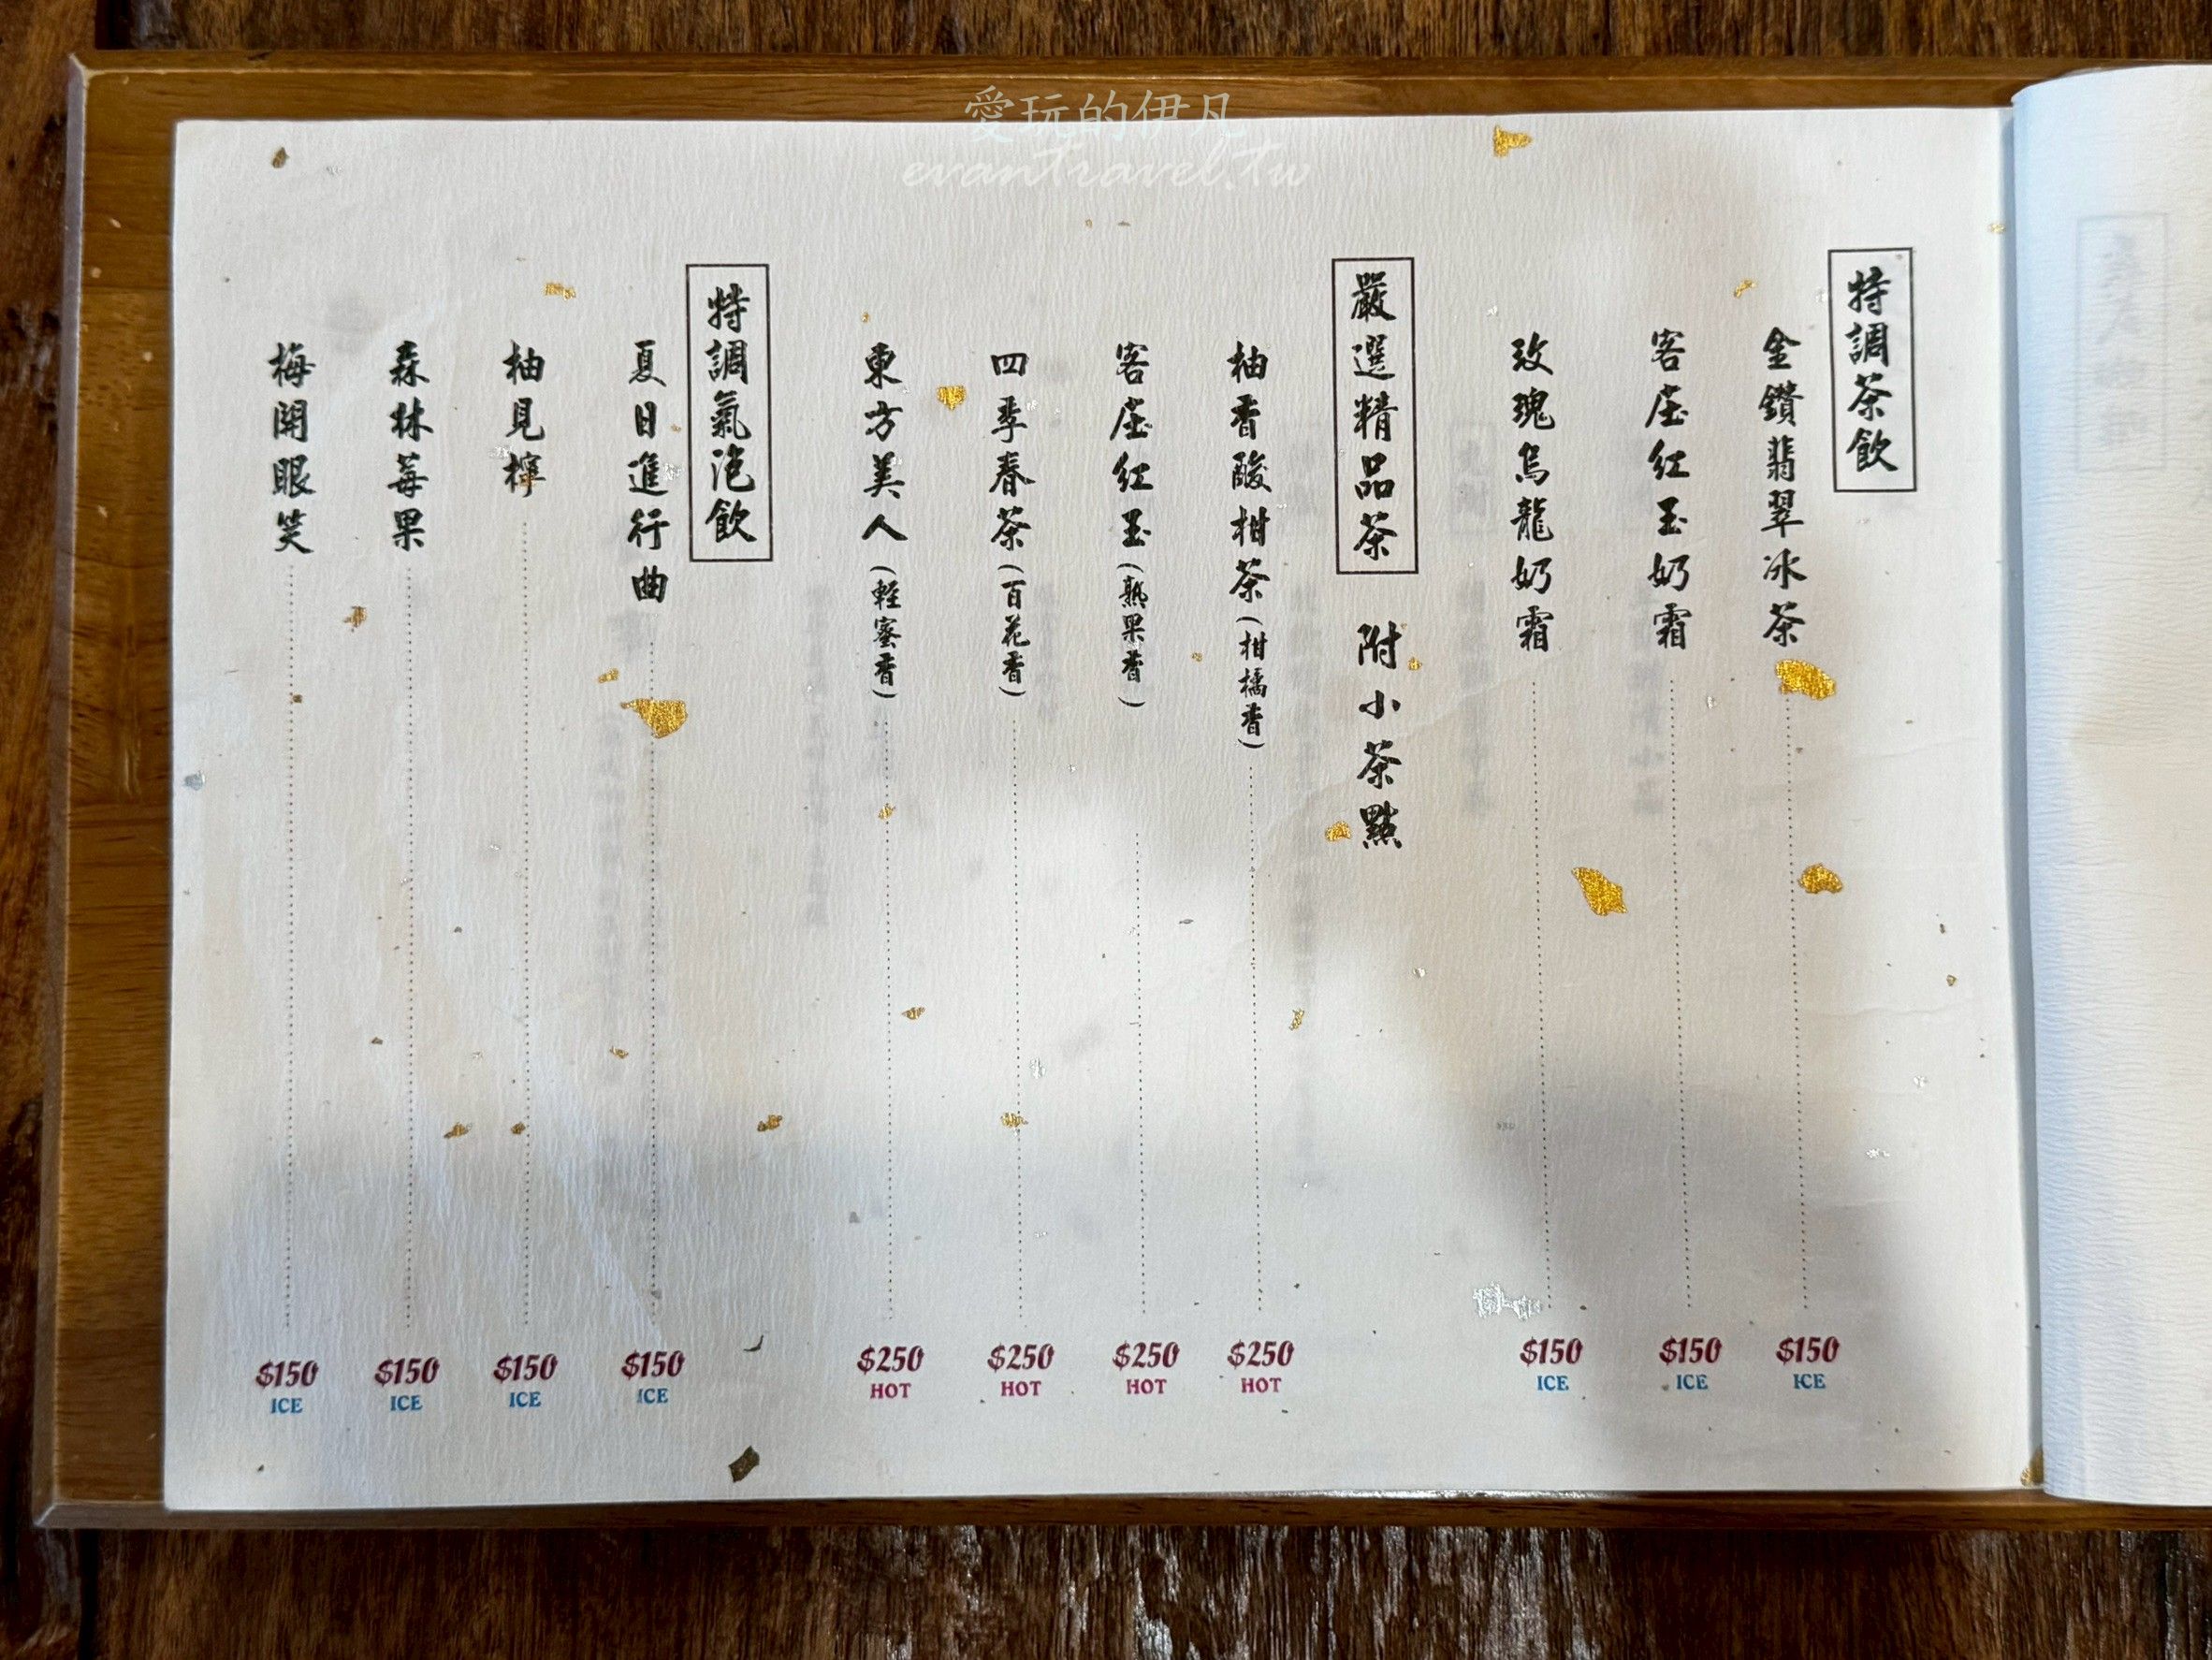 愛玩的伊凡
evanTravel.Tw
特調茶飲
金鑽翡翠冰茶
$150
ICE
客座紅玉奶霜
$150
ICE
玫瑰烏龍奶霜
$150
ICE
嚴選精品茶 附小茶點
柚香酸柑茶(柑橘香)
$250
HOT
客座紅玉(熟果香)
$250
HOT
四季春茶(百花香)
$250
HOT
東方美人(輕蜜香)
$250
HOT
特調氣泡飲
夏日進行曲
$150
ICE
柚見檸
$150
ICE
森林莓果
$150
ICE
梅開眼笑
$150
ICE